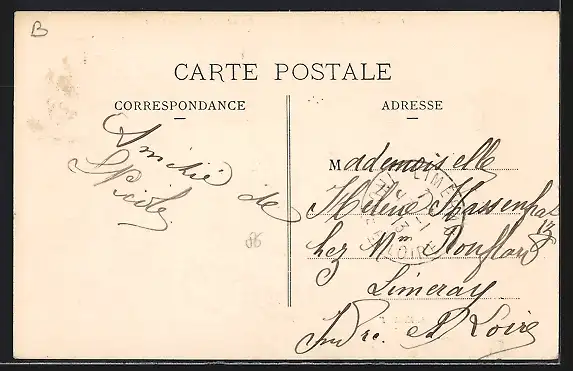 B
CARTE POSTALE
CORRESPONDANCE
ADRESSE
Amitié de
Nicole
Mademoiselle
Hélène
chez Mme Rouflard
Limeray
Indre et Loire